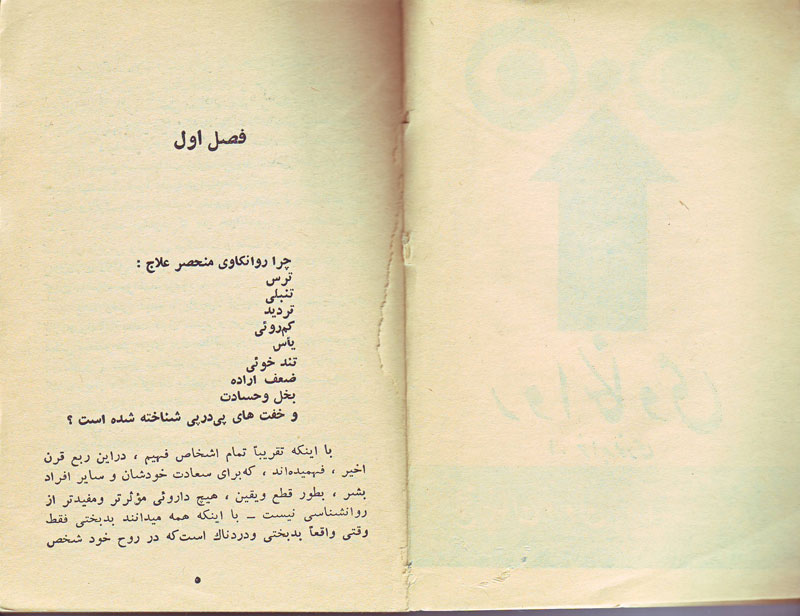 روانکاوی
فصل اول
چرا روانکاوی منحصر علاج :
ترس
تنبلی
تردید
کم‌روئی
یأس
تند خوئی
ضعف اراده
بخل وحسادت
و خفت های پی‌درپی شناخته شده است ؟
با اینکه تقریباً تمام اشخاص فهیم ، دراین ربع قرن
اخیر ، فهمیده‌اند ، که‌برای سعادت خودشان و سایر افراد
بشر ، بطور قطع ویقین ، هیچ داروئی مؤثرتر ومفیدتر از
روانشناسی نیست ـ با اینکه همه میدانند بدبختی فقط
وقتی واقعاً بدبختی ودردناك است‌که در روح خود شخص
۵